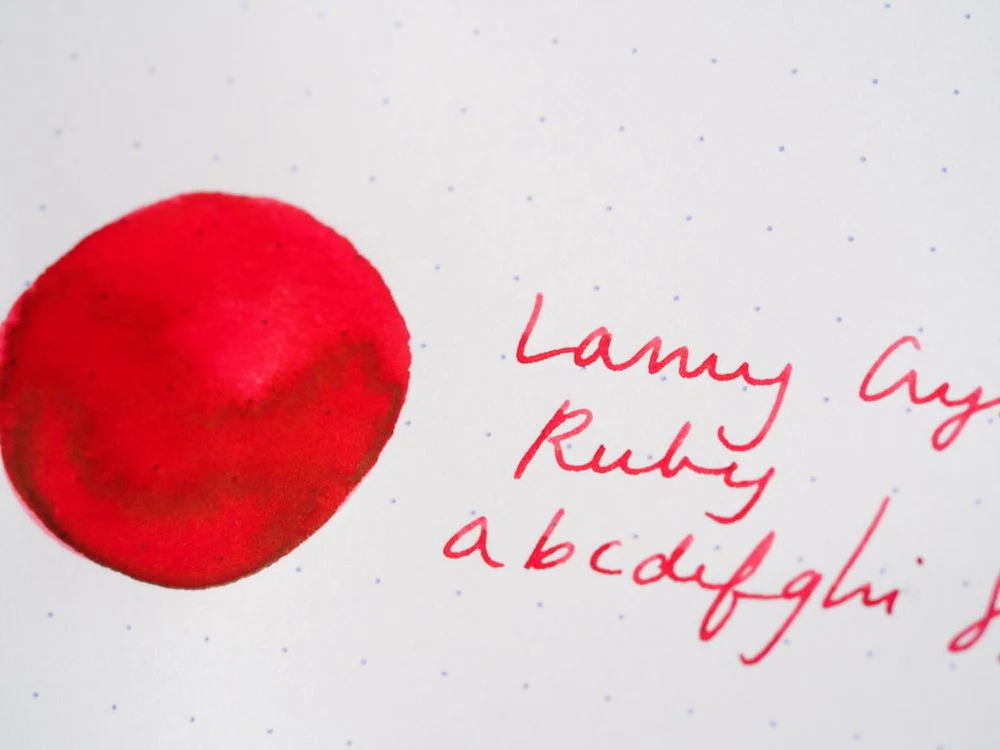 Lamy Crys
Ruby
abcdefghi